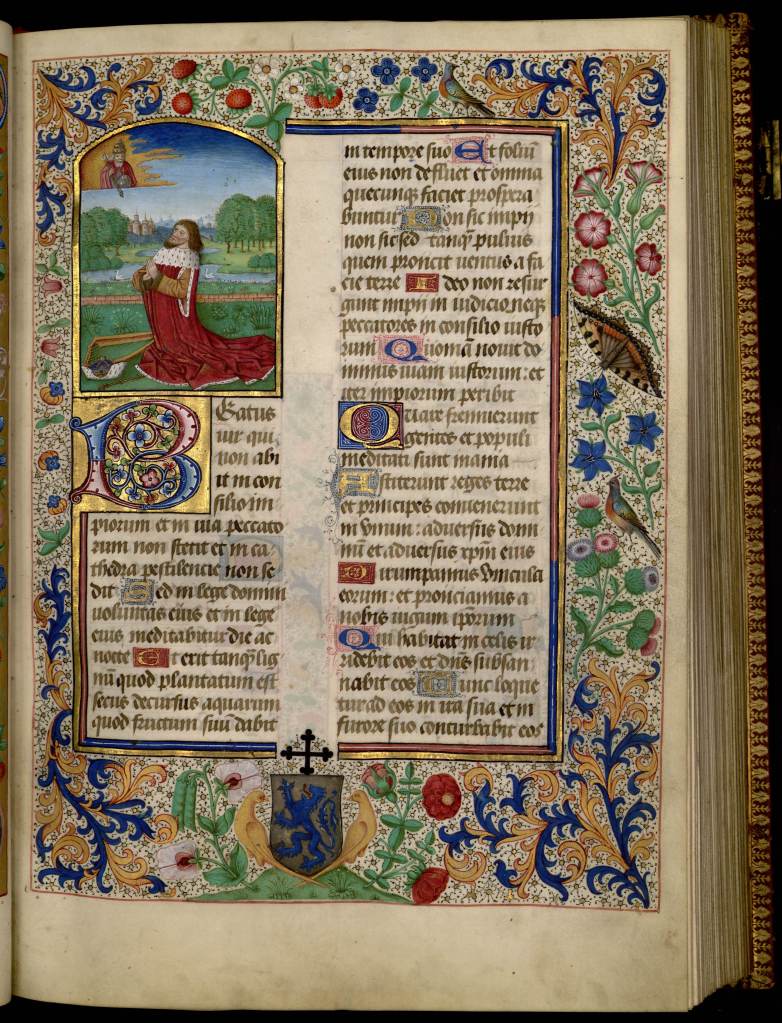 Beatus
uir qui
non abi
it in con
silio im
piorum et in uia peccato
rum non stetit et in ca
thedra pestilencie non se
dit Sed in lege domini
uoluntas eius et in lege
eius meditabitur die ac
nocte Et erit tanqȝ lig
nū quod plantatum est
secus decursus aquarum
quod fructum suū dabit
in tempore suo Et foliū
eius non defluet et omnia
quecunqȝ faciet prospera
buntur Non sic impii
non sic sed tanqȝ puluis
quem proiicit uentus a fa
cie terre Ideo non resur
gunt impii in iudicio neqȝ
peccatores in consilio iusto
rum Quoniā nouit do
minus uiam iustorum: et
iter impiorum peribit
Quare fremuerunt
gentes et populi
meditati sunt inania
Astiterunt reges terre
et principes conuenerunt
in vnum: aduersus domi
nū et aduersus xp̄m eius
Dirumpamus vincula
eorum: et proiiciamus a
nobis iugum ip̄orum
Qui habitat in celis ir
ridebit eos et dn̄s subsan
nabit eos Tunc loque
tur ad eos in ira sua et in
furore suo conturbabit eos